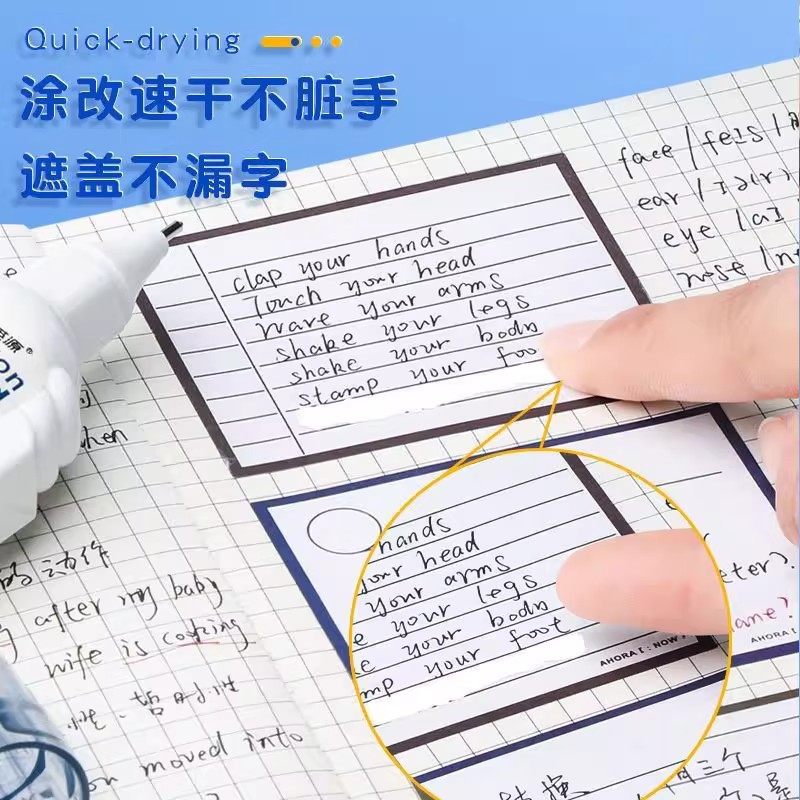 Quick-drying
涂改速干不脏手
遮盖不漏字
clap your hands
Touch your head
wave your arms
shake your legs
shake your body
stamp your foo
face /feis/
ear /
eye /aI
nose /n
源®
on
hen
的动作
after my baby
wife is
moved into
hands
your head
your arms
e your legs
e your body
mp your foot
AHORA [ : NOW ]
eter).
ame?
AHORA [ : NOW
三个